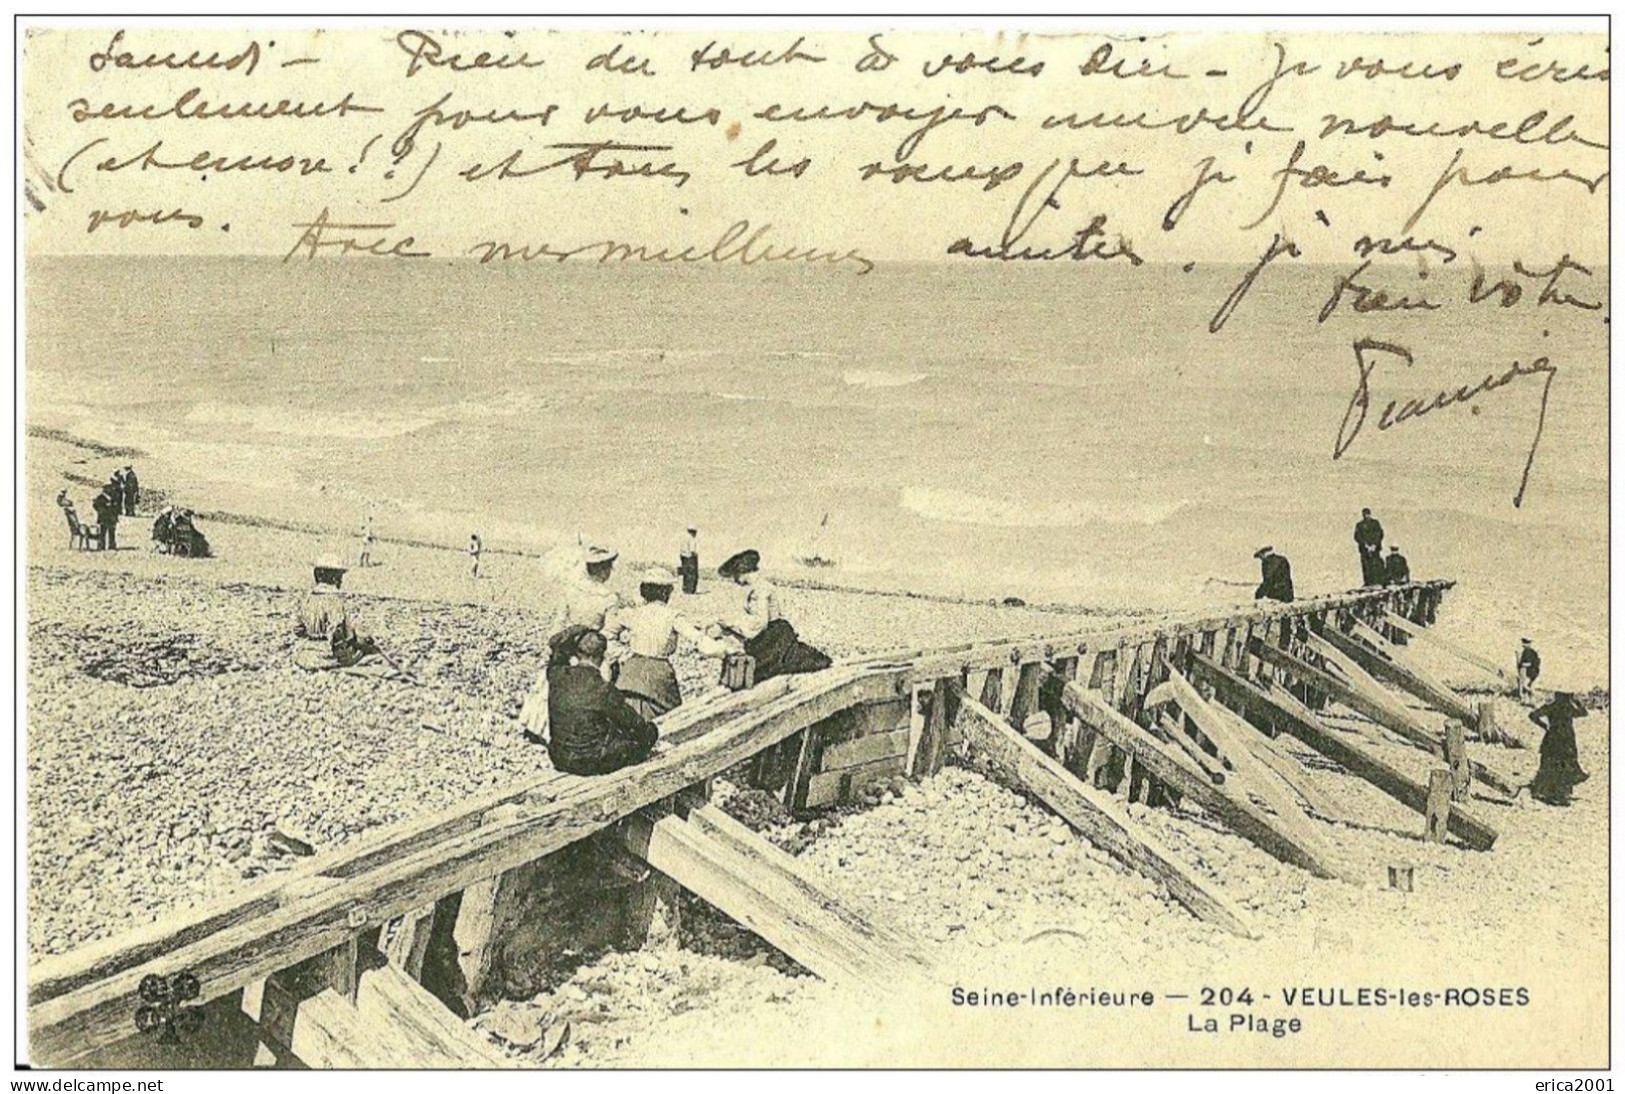 Samedi - Rien du tout à vous dire - Je vous écris
seulement pour vous envoyer une vue nouvelle
(et encore!?) et tous les vœux que je fais pour
vous. Avec mes meilleures amitiés, je suis
bien vôtre.
Seine-Inférieure — 204 - VEULES-les-ROSES
La Plage
www.delcampe.net
erica2001